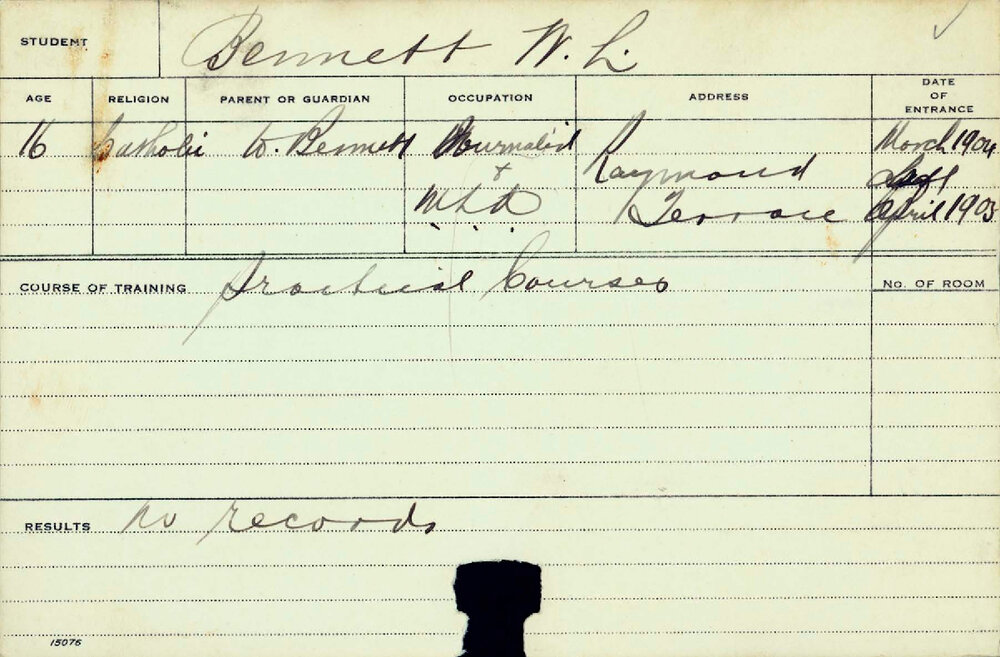 STUDENT Bennett W. L.
AGE RELIGION PARENT OR GUARDIAN OCCUPATION ADDRESS DATE OF ENTRANCE
16 Catholic W. Bennett Journalist Raymond March 1904
& Left
M L A Terrace April 1905
COURSE OF TRAINING Practical Courses No. OF ROOM
RESULTS no records
15076